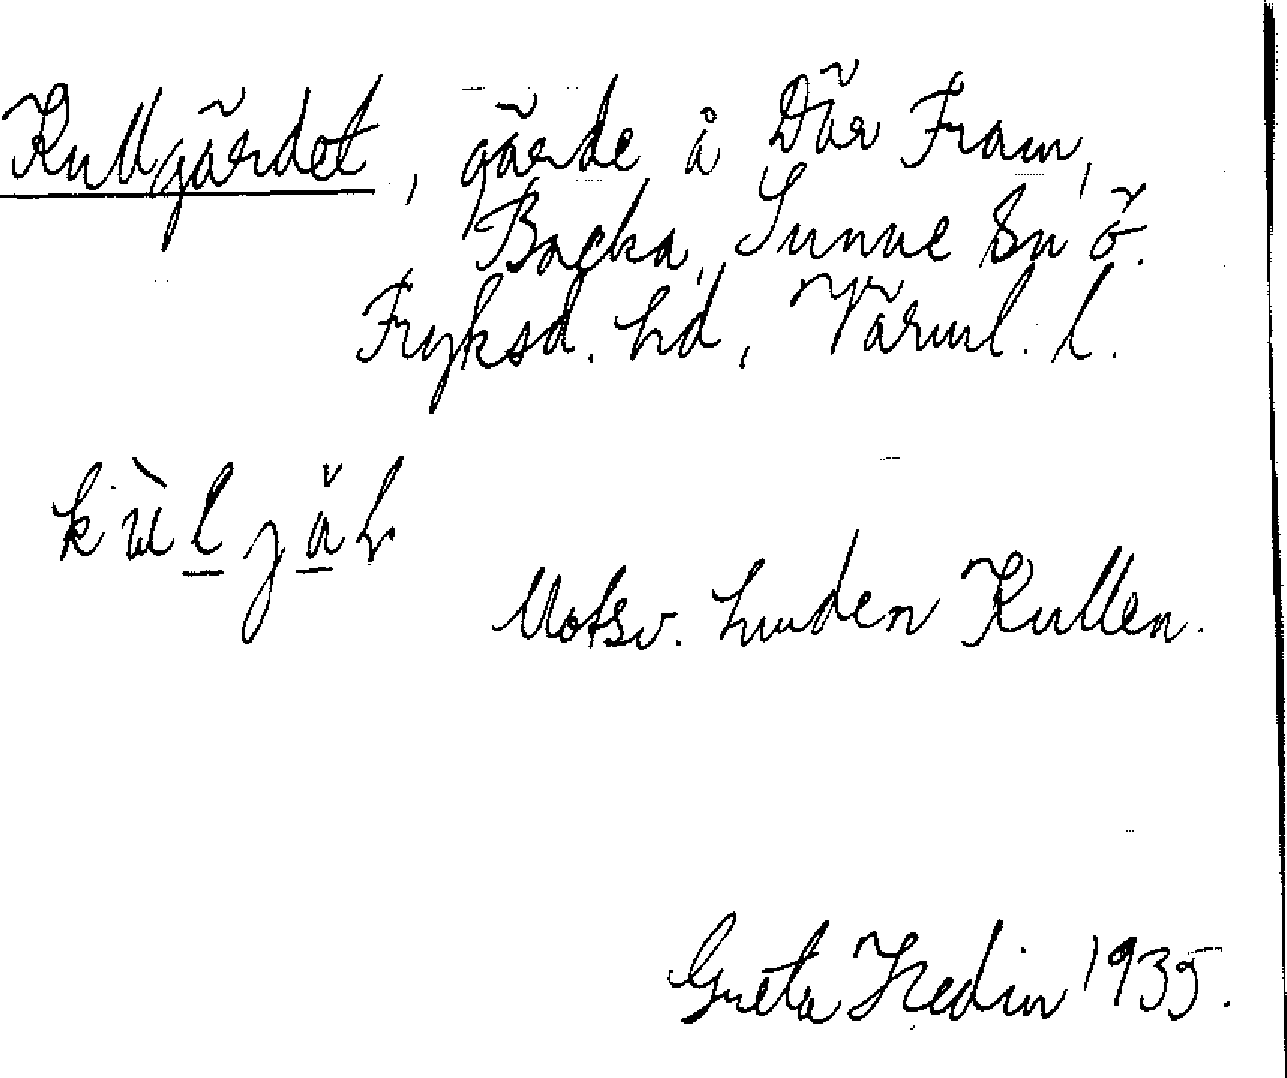 Kullgärdet, gärde å Där Fram,
Backa, Sunne Sn Ö.
Fryksd. hd, Värml. l.
kùljäɫ
Motsv. hmden Kullen.
Greta Hedin 1935.